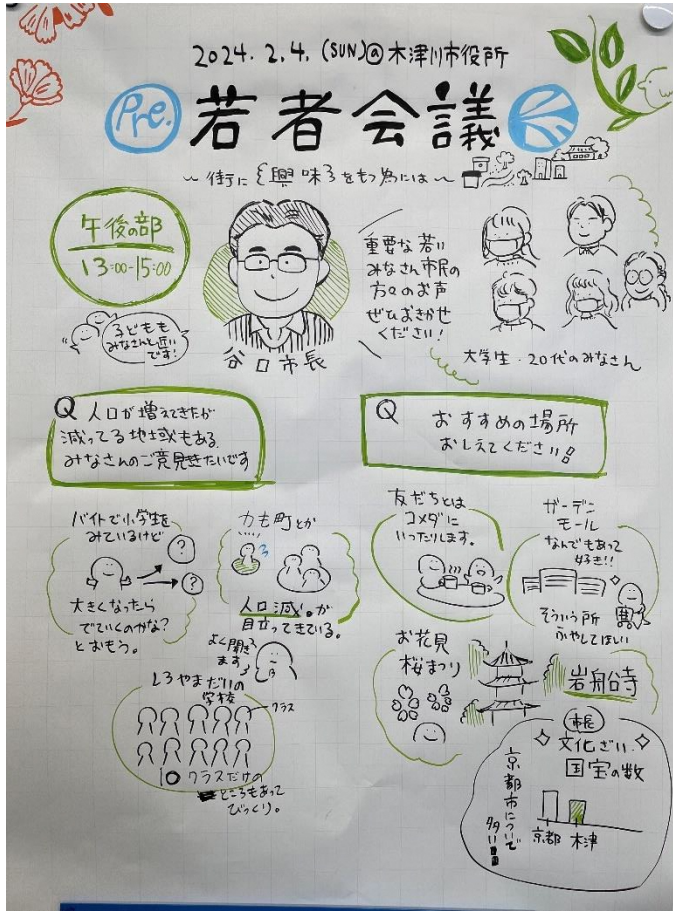 2024.2.4.(SUN)@木津川市役所
Pre.
若者会議
~街に興味をもつ為には~
午後の部
13:00-15:00
子どもも
みなさんと近い
です!
谷口市長
重要な若い
みなさん市民の
方々のお声
ぜひおきかせ
ください!
大学生・20代のみなさん
Q 人口が増えてきたが
減ってる地域もある
みなさんのご意見ききたいです
Q おすすめの場所
おしえてください!
バイトで小学生を
みているけど
?
?
大きくなったら
でていくのかな?
とおもう。
カモ町とか
人口減。が
目立ってきている。
よく聞き
ます
しろやまだいの
学校
クラス
10クラスだけの
ところもあって
びっくり。
友だちとは
コメダに
いったりします。
ガーデン
モール
なんでもあって
好き!!
そういう所
ふやしてほしい
お花見
桜まつり
岩船寺
市長
文化ざい.
国宝の数
京都
木津
京都市についで
多い